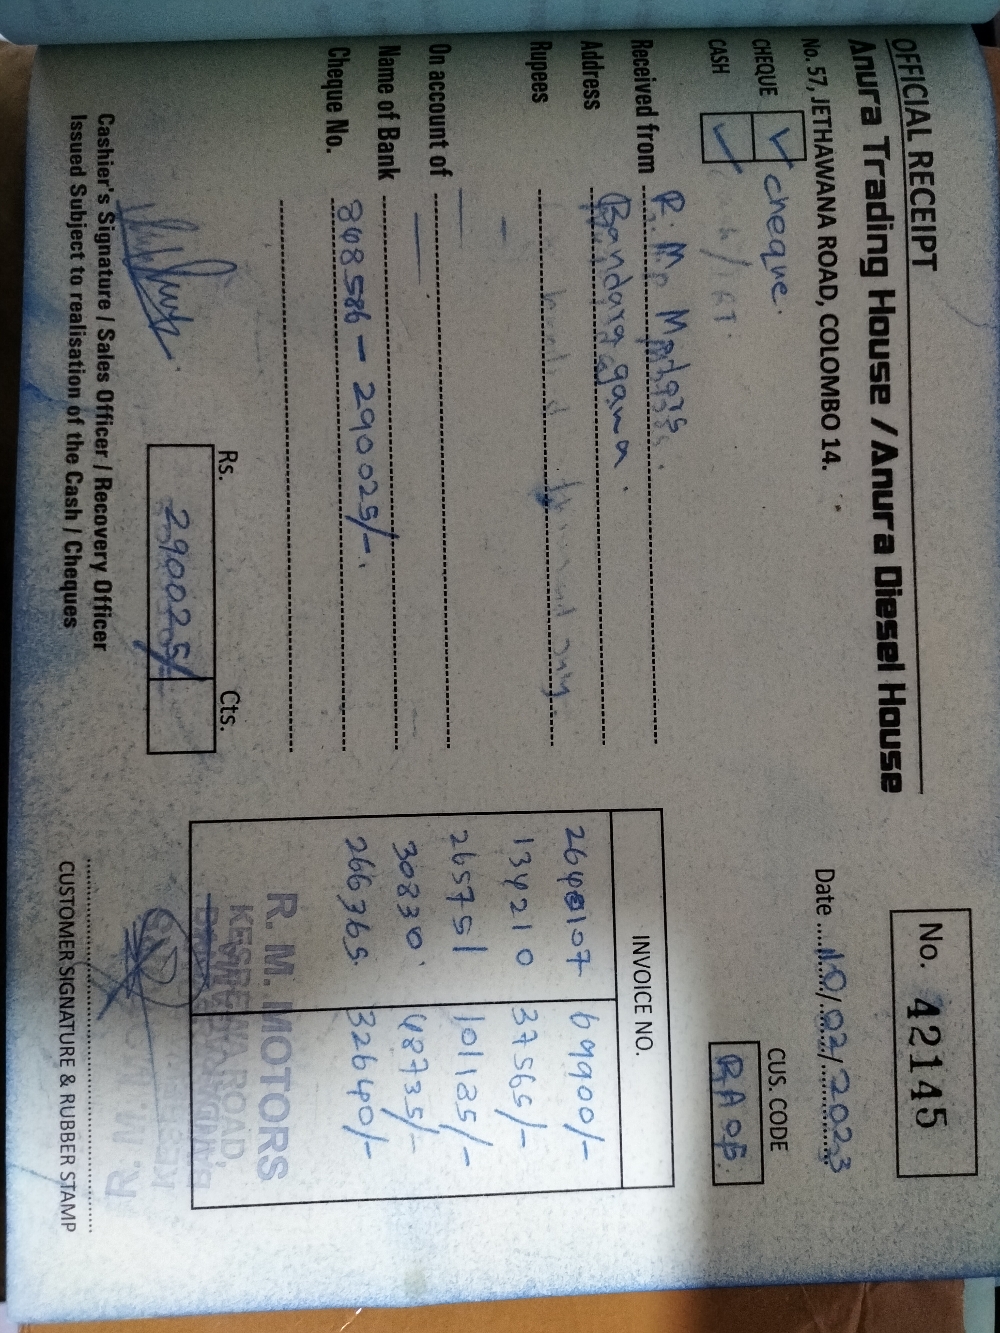 OFFICIAL RECEIPT
Anura Trading House / Anura Diesel House
No. 57, JETHAWANA ROAD, COLOMBO 14.
No. 42145
Date 10/02/2023
CHEQUE ✓ cheque.
CASH ✓
CUS. CODE
Received from R. M. Motors.
Address Bandaragama.
Rupees
On account of —
Name of Bank —
Cheque No. 848586 – 290025/-.
Rs. Cts.
290025/
Cashier's Signature / Sales Officer / Recovery Officer
Issued Subject to realisation of the Cash / Cheques
INVOICE NO.
69900/-
134210 37565/-
265751 101185/-
30830. 48735/-
266365 32640/-
R. M. MOTORS
KESBEWA ROAD,
CUSTOMER SIGNATURE & RUBBER STAMP